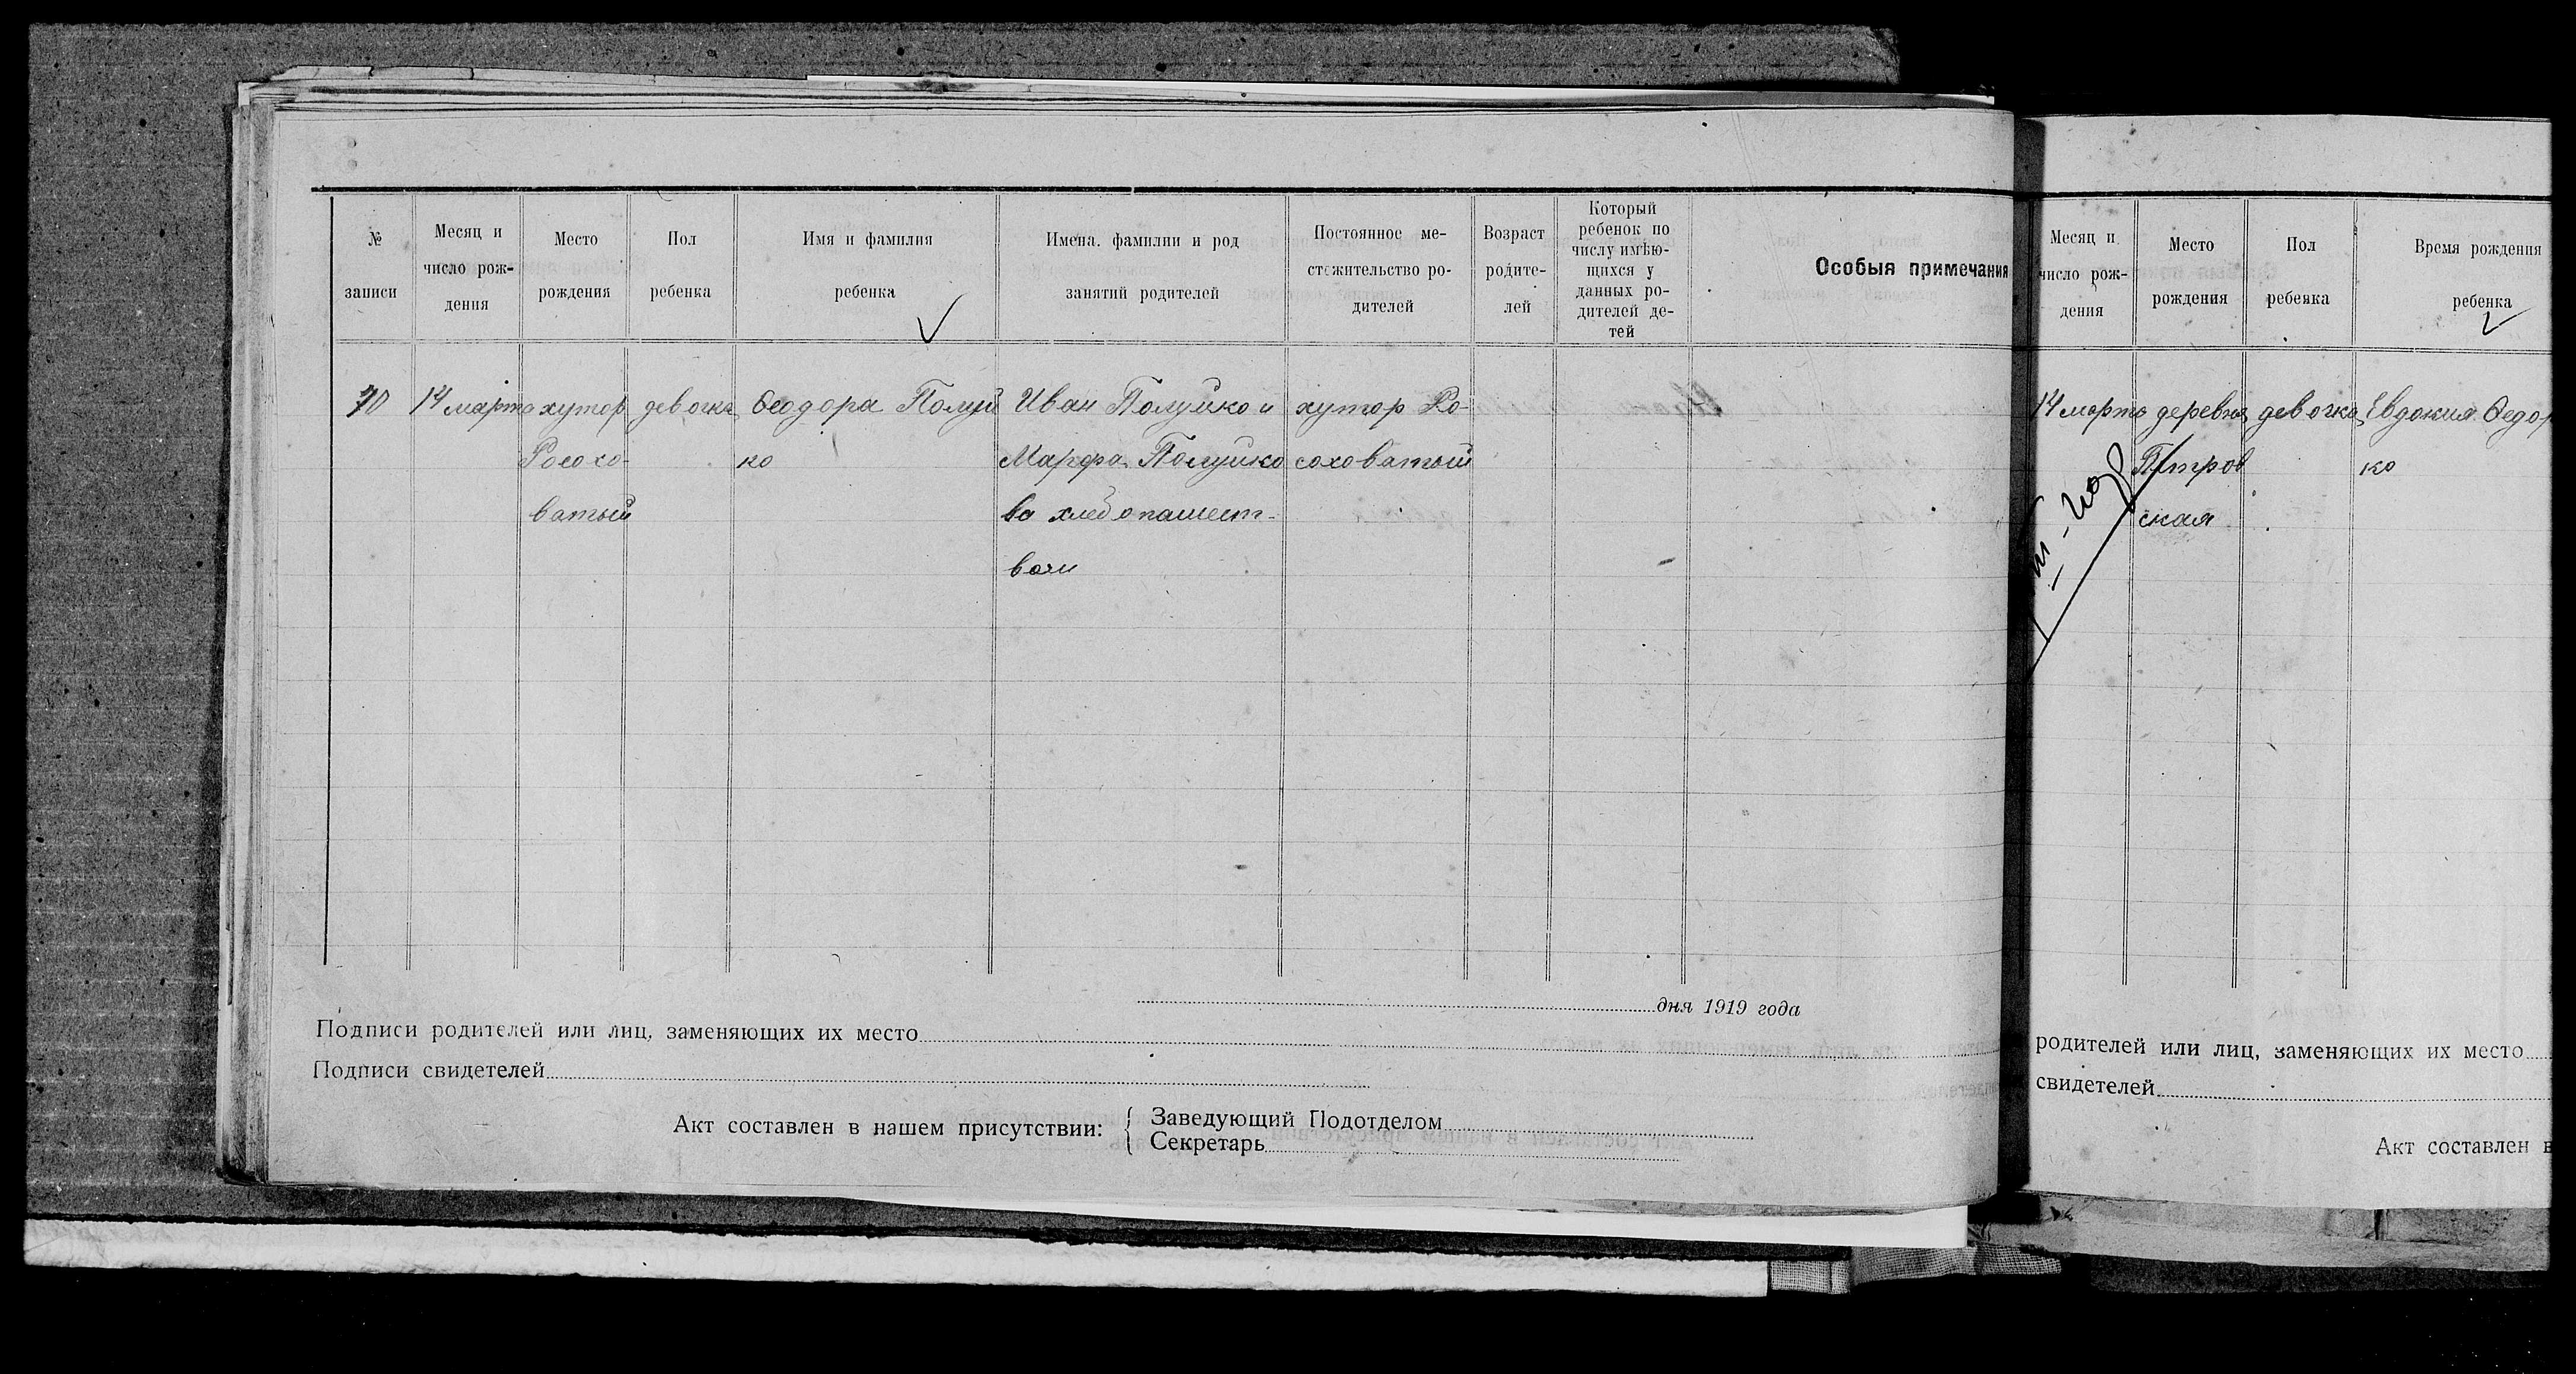 № записи
Месяц и число рож-дения
Место рождения
Пол ребенка
Имя и фамилия ребенка
Имена. фамилии и род занятий родителей
Постоянное ме-стожительство ро-дителей
Возраст родите-лей
Который ребенок по числу имѣю-щихся у данных ро-дителей де-тей
Особыя примечания
70 14 марта хутор девочка Ѳеодора Полуй Иван Полуйко и хутор Ро-
Росохо- ко Марфа Полуйко соховатый
ватый во хлебопашест-
вом
дня 1919 года
Подписи родителей или лиц, заменяющих их место
Подписи свидетелей
Акт составлен в нашем присутствии: { Заведующий Подотделом
Секретарь
Месяц и число рож-дения
Место рождения
Пол ребенка
Время рождения ребенка
14 марта деревня девочка Евдокия Ѳедор
Петров ко
ская
родителей или лиц, заменяющих их место
свидетелей
Акт составлен в